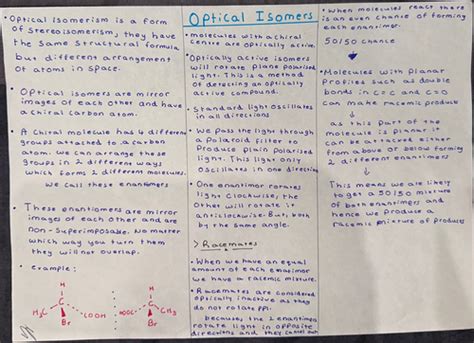 Optical Isomers
• Optical isomerism is a form
of stereoisomerism, they have
the same structural formula
but different arrangement
of atoms in space.
• Optical isomers are mirror
images of each other and have
a chiral carbon atom.
• A chiral molecule has 4 different
groups attached to a carbon
atom. We can arrange these
groups in 2 different ways
which forms 2 different molecules.
We call these enantiomers
• These enantiomers are mirror
images of each other and are
non-superimposable. No matter
which way you turn them
they will not overlap.
• example:
H
C
H₃C
COOH
Br
H
C
HOOC
CH₃
Br
• molecules with a chiral
centre are optically active.
• Optically active isomers
will rotate plane polarised
light. This is a method
of detecting an optically
active compound.
• Standard light oscillates
in all directions
• We pass the light through
a Polaroid filter to
produce plain polarised
light. This light only
oscillates in one direction
• One enantiomer rotates
light clockwise, the
other will rotate it
anticlockwise. But, both
by the same angle.
> Racemates
• When we have an equal
amount of each
we have a racemic mixture.
• Racemates are considered
optically inactive as they
do not rotate PPL.
because, the 2 enantiomers
rotate light in opposite
directions and they cancel out
• When molecules react there
is an even chance of forming
each enantiomer.
50/50 chance
• Molecules with planar
profiles such as double
bonds in C=C and C=O
can make racemic produce
as this part of the
molecule is planar it
can be attacked either
from above or below forming
2 different enantiomers
This means we are likely
to get a 50/50 mixture
of both enantiomers and
hence we produce a
racemic mixture of products